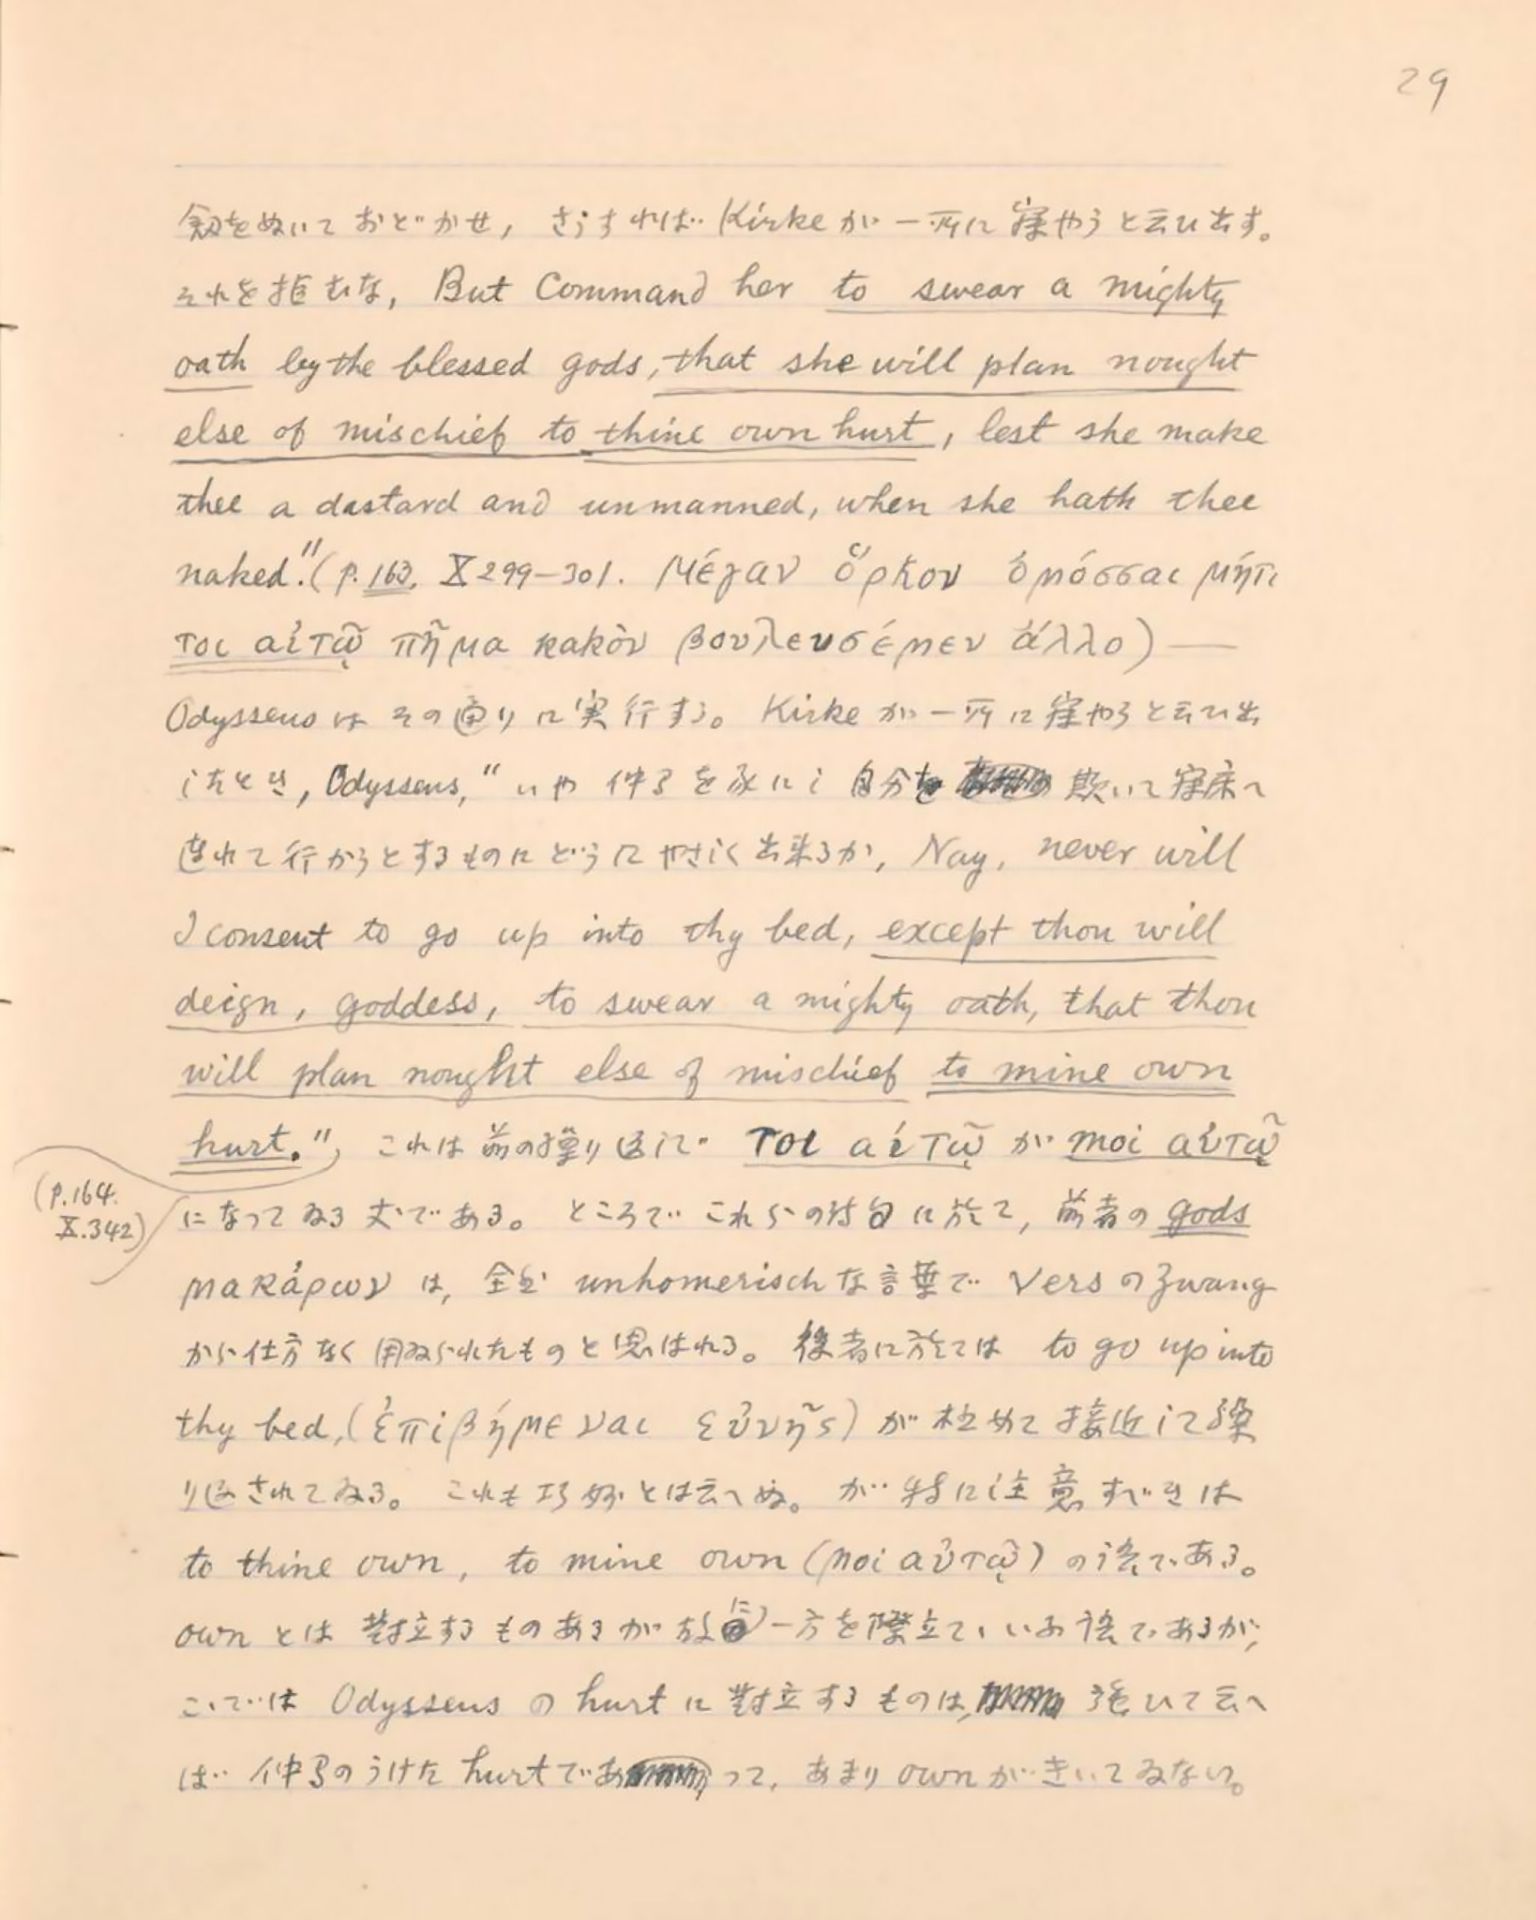 29
剱をぬいておどかせ, さうすればKirkeが一所に寝やうと云ひ出す。
それを拒むな, But Command her to swear a mighty
oath by the blessed gods, that she will plan nought
else of mischief to thine own hurt, lest she make
thee a dastard and unmanned, when she hath thee
naked."(p. 163. X 299-301. μέγαν ὅρκον ὀμόσσαι μήτι
τοι αὐτῷ πῆμα κακὸν βουλευσέμεν ἄλλο)—
Odysseusはその通りに実行する。Kirkeが一所に寝やうと云ひ出
したとき, Odysseus, "いや 仲間を豕にし 自分を 欺いて寝床へ
連れて行かうとするものにどうしてやさしく出来るか, Nay, never will
I consent to go up into thy bed, except thou will
deign, goddess, to swear a mighty oath, that thou
will plan nought else of mischief to mine own
hurt.", これは前の繰り返して τοι αὐτῷ が μοι αὐτῷ
(p.164.
X.342)
になってゐる丈である。ところでこれらの詩句に於て, 前者の gods
μακάρων は, 全然 unhomerisch な言葉で Vers の Zwang
から仕方なく用ゐられたものと思はれる。後者に於ては to go up into
thy bed, (ἐπιβήμεναι εὐνῆς) が極めて接近して繰
り返されてゐる。これも巧妙とは云へぬ。が特に注意すべきは
to thine own, to mine own (μοι αὐτῷ) の語である。
own とは対立するものあるが故に一方を際立ていふ語であるが,
こゝでは Odysseus の hurt に対立するものは, 強ひて云へ
ば 仲間のうけた hurt であって, あまり own がきいてゐない。